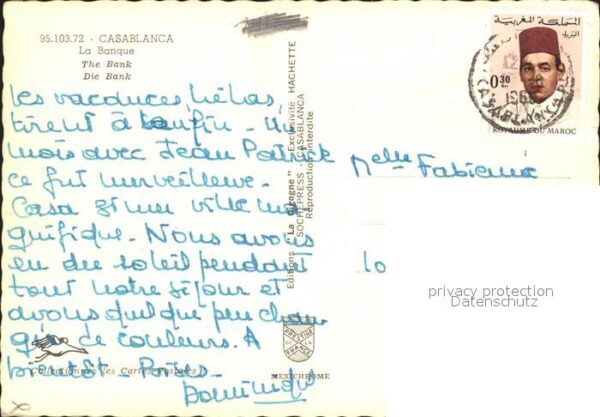 95.103.72 - CASABLANCA
La Banque
The Bank
Die Bank
Les vacances, hélas,
tirent à leur fin - Un
mois avec Jean Patrick
ce fut merveilleux.
Casa est une ville ma
gnifique. Nous avons
eu du soleil pendant
tout notre séjour et
avons quelque peu chan
gé de couleurs. A
bientôt - Bises -
Dominique
Collectionnez les Cartes Postales
Editions "La Cigogne" Exclusivité HACHETTE
SOCHEPRESS - CASABLANCA
Reproduction interdite
MEXICHROME
Melle Fabienne
10
المملكة المغربية
البريد
0,30
ROYAUME DU MAROC
CASABLANCA
privacy protection
Datenschutz